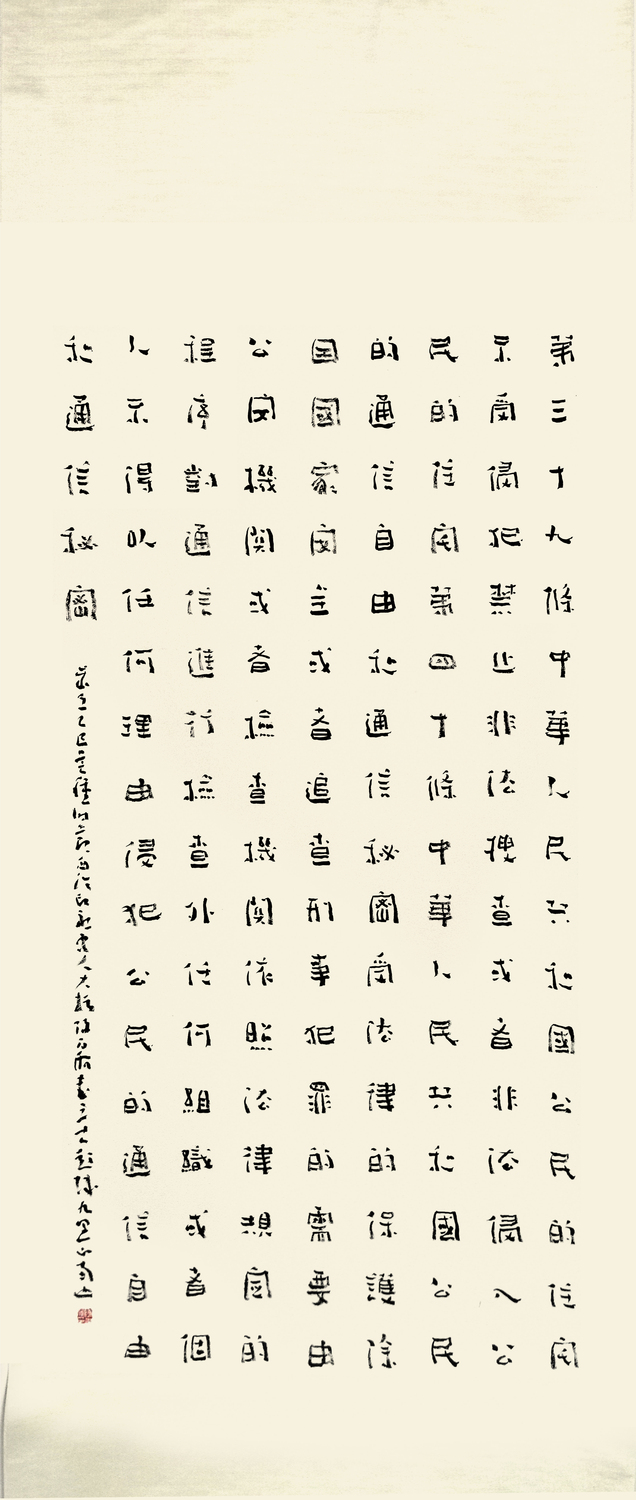 第三十九條中華人民共和國公民的住宅
不受侵犯禁止非法搜查或者非法侵入公
民的住宅第四十條中華人民共和國公民
的通信自由和通信秘密受法律的保護除
因國家安全或者追查刑事犯罪的需要由
公安機関或者檢查機関依照法律規定的
程序對通信進行檢查外任何組織或者個
人不得以任何理由侵犯公民的通信自由
和通信秘密
乙巳